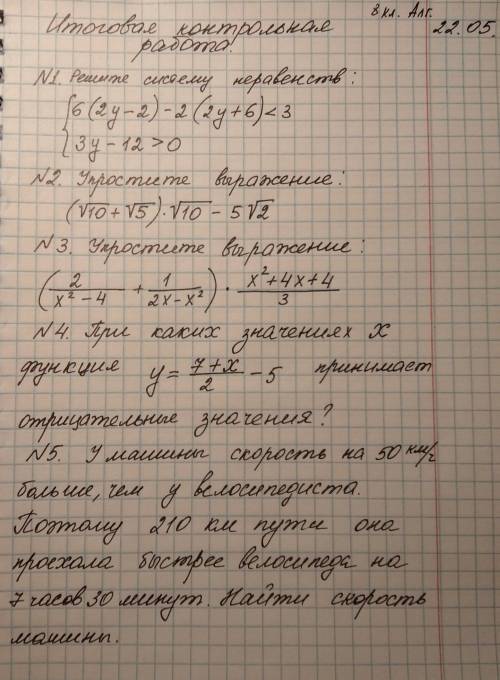 8 кл. Алг.
22.05.
Итоговая контрольная
работа.
№1. Решите систему неравенств:
{ 6(2y-2)-2(2y+6)<3
3y-12>0
№2. Упростите выражение:
(√10+√5)·√10-5√2
№3. Упростите выражение:
(2/(x²-4) + 1/(2x-x²)) · (x²+4x+4)/3
№4. При каких значениях x
функция y = (7+x)/2 - 5 принимает
отрицательные значения?
№5. У машины скорость на 50 км/ч
больше, чем у велосипедиста.
Поэтому 210 км пути она
проехала быстрее велосипеда на
7 часов 30 минут. Найти скорость
машины.